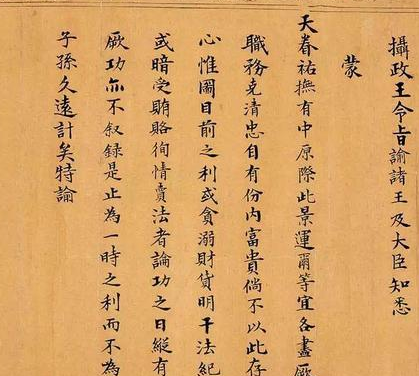 攝政王令旨諭諸王及大臣知悉
蒙
天眷祐撫有中原際此景運爾等宜各盡厥
職務克清忠自有份內富貴倘不以此存
心惟圖目前之利或貪溺財貨明干法紀
或暗受賄賂徇情賣法者論功之日縱有
厥功亦不叙録是止為一時之利而不為
子孫久遠計矣特諭